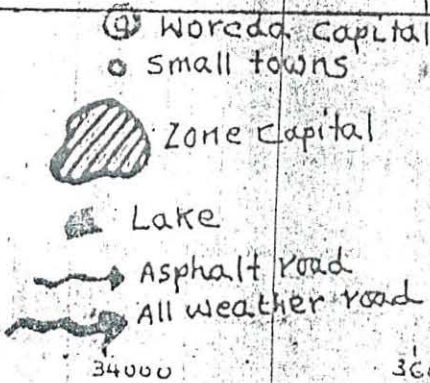 Woreda Capital
Small towns
Zone Capital
Lake
Asphalt road
All weather road
34000